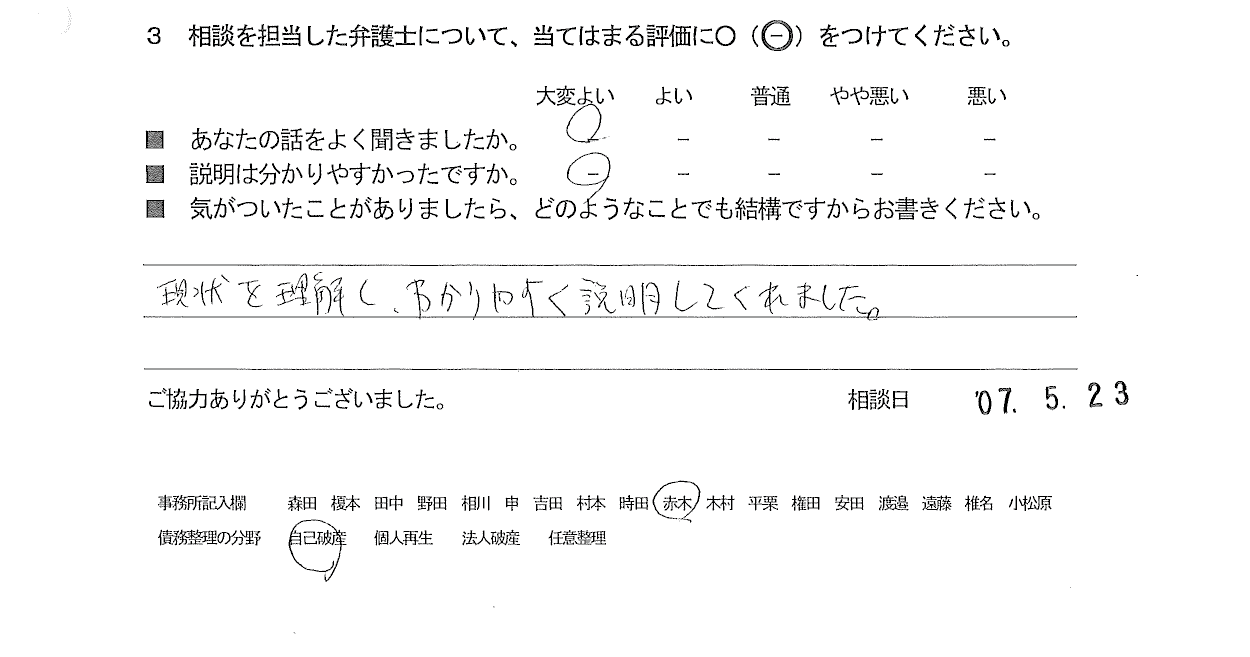 3 相談を担当した弁護士について、当てはまる評価に〇（㊀）をつけてください。
大変よい よい 普通 やや悪い 悪い
■ あなたの話をよく聞きましたか。 － － － － －
■ 説明は分かりやすかったですか。 － － － － －
■ 気がついたことがありましたら、どのようなことでも結構ですからお書きください。
現状を理解し、わかりやすく説明してくれました。
ご協力ありがとうございました。 相談日 '07. 5. 23
事務所記入欄 森田 榎本 田中 野田 相川 申 吉田 村本 時田 赤木 木村 平栗 権田 安田 渡邉 遠藤 椎名 小松原
債務整理の分野 自己破産 個人再生 法人破産 任意整理